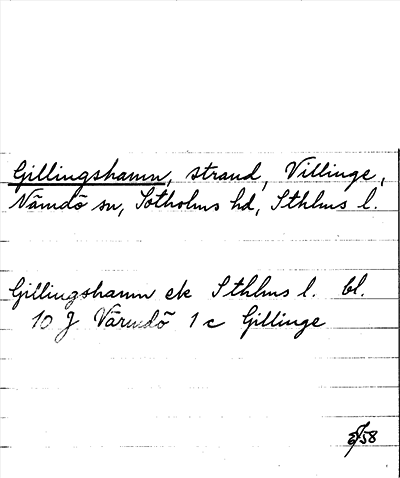 Gillingshamn, strand, Villinge,
Nämdö sn, Sotholms hd, Sthlms l.
Gillingshamn ek Sthlms l. bl.
10 J Värmdö 1 c Gillinge
58